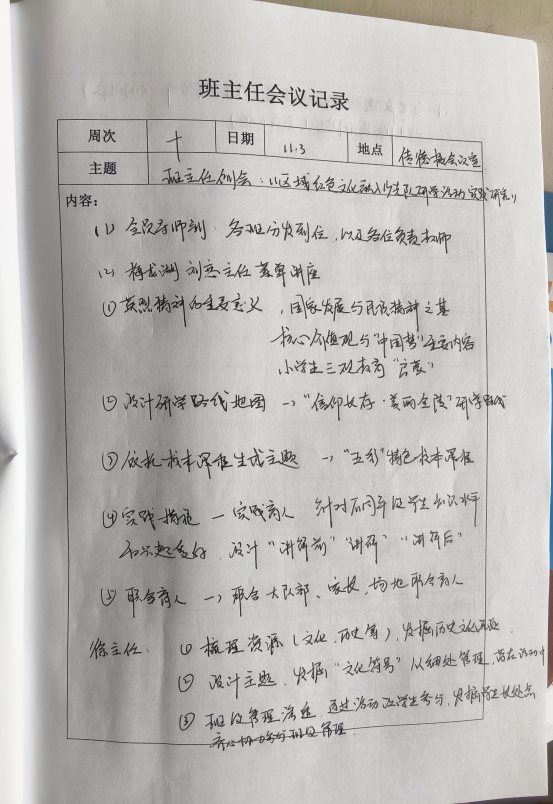 班主任会议记录
周次 十 日期 11.3 地点 传德楼会议室
主题 班主任例会：《区域红色文化融入少先队研学活动实践研究》
内容：
(1) 全员导师制：各班分发到位，以及各位负责教师
(2) 梅龙湖 刘 主任 讲座
① 英烈精神的重要意义，国家发展与民族精神之基
核心价值观与"中国梦"主要内容
小学生三观教育"启蒙"
② 设计研学路线地图 → "信仰长存·美丽金陵"研学路线
③ 依托校本课程生成主题 → "五彩"特色校本课程
④ 实践措施 — 实践育人 针对不同年段学生知识水平
和兴趣爱好，设计"讲解前""讲解""讲解后"
⑤ 联合育人 → 联合大队部、家长，场地联合育人
徐主任： ① 梳理资源（文化、历史等），发掘历史文化
② 设计主题，发掘"文化符号"从细处管理，
③ 班级管理 通过活动让学生参与，发掘学生长处去
班级管理.